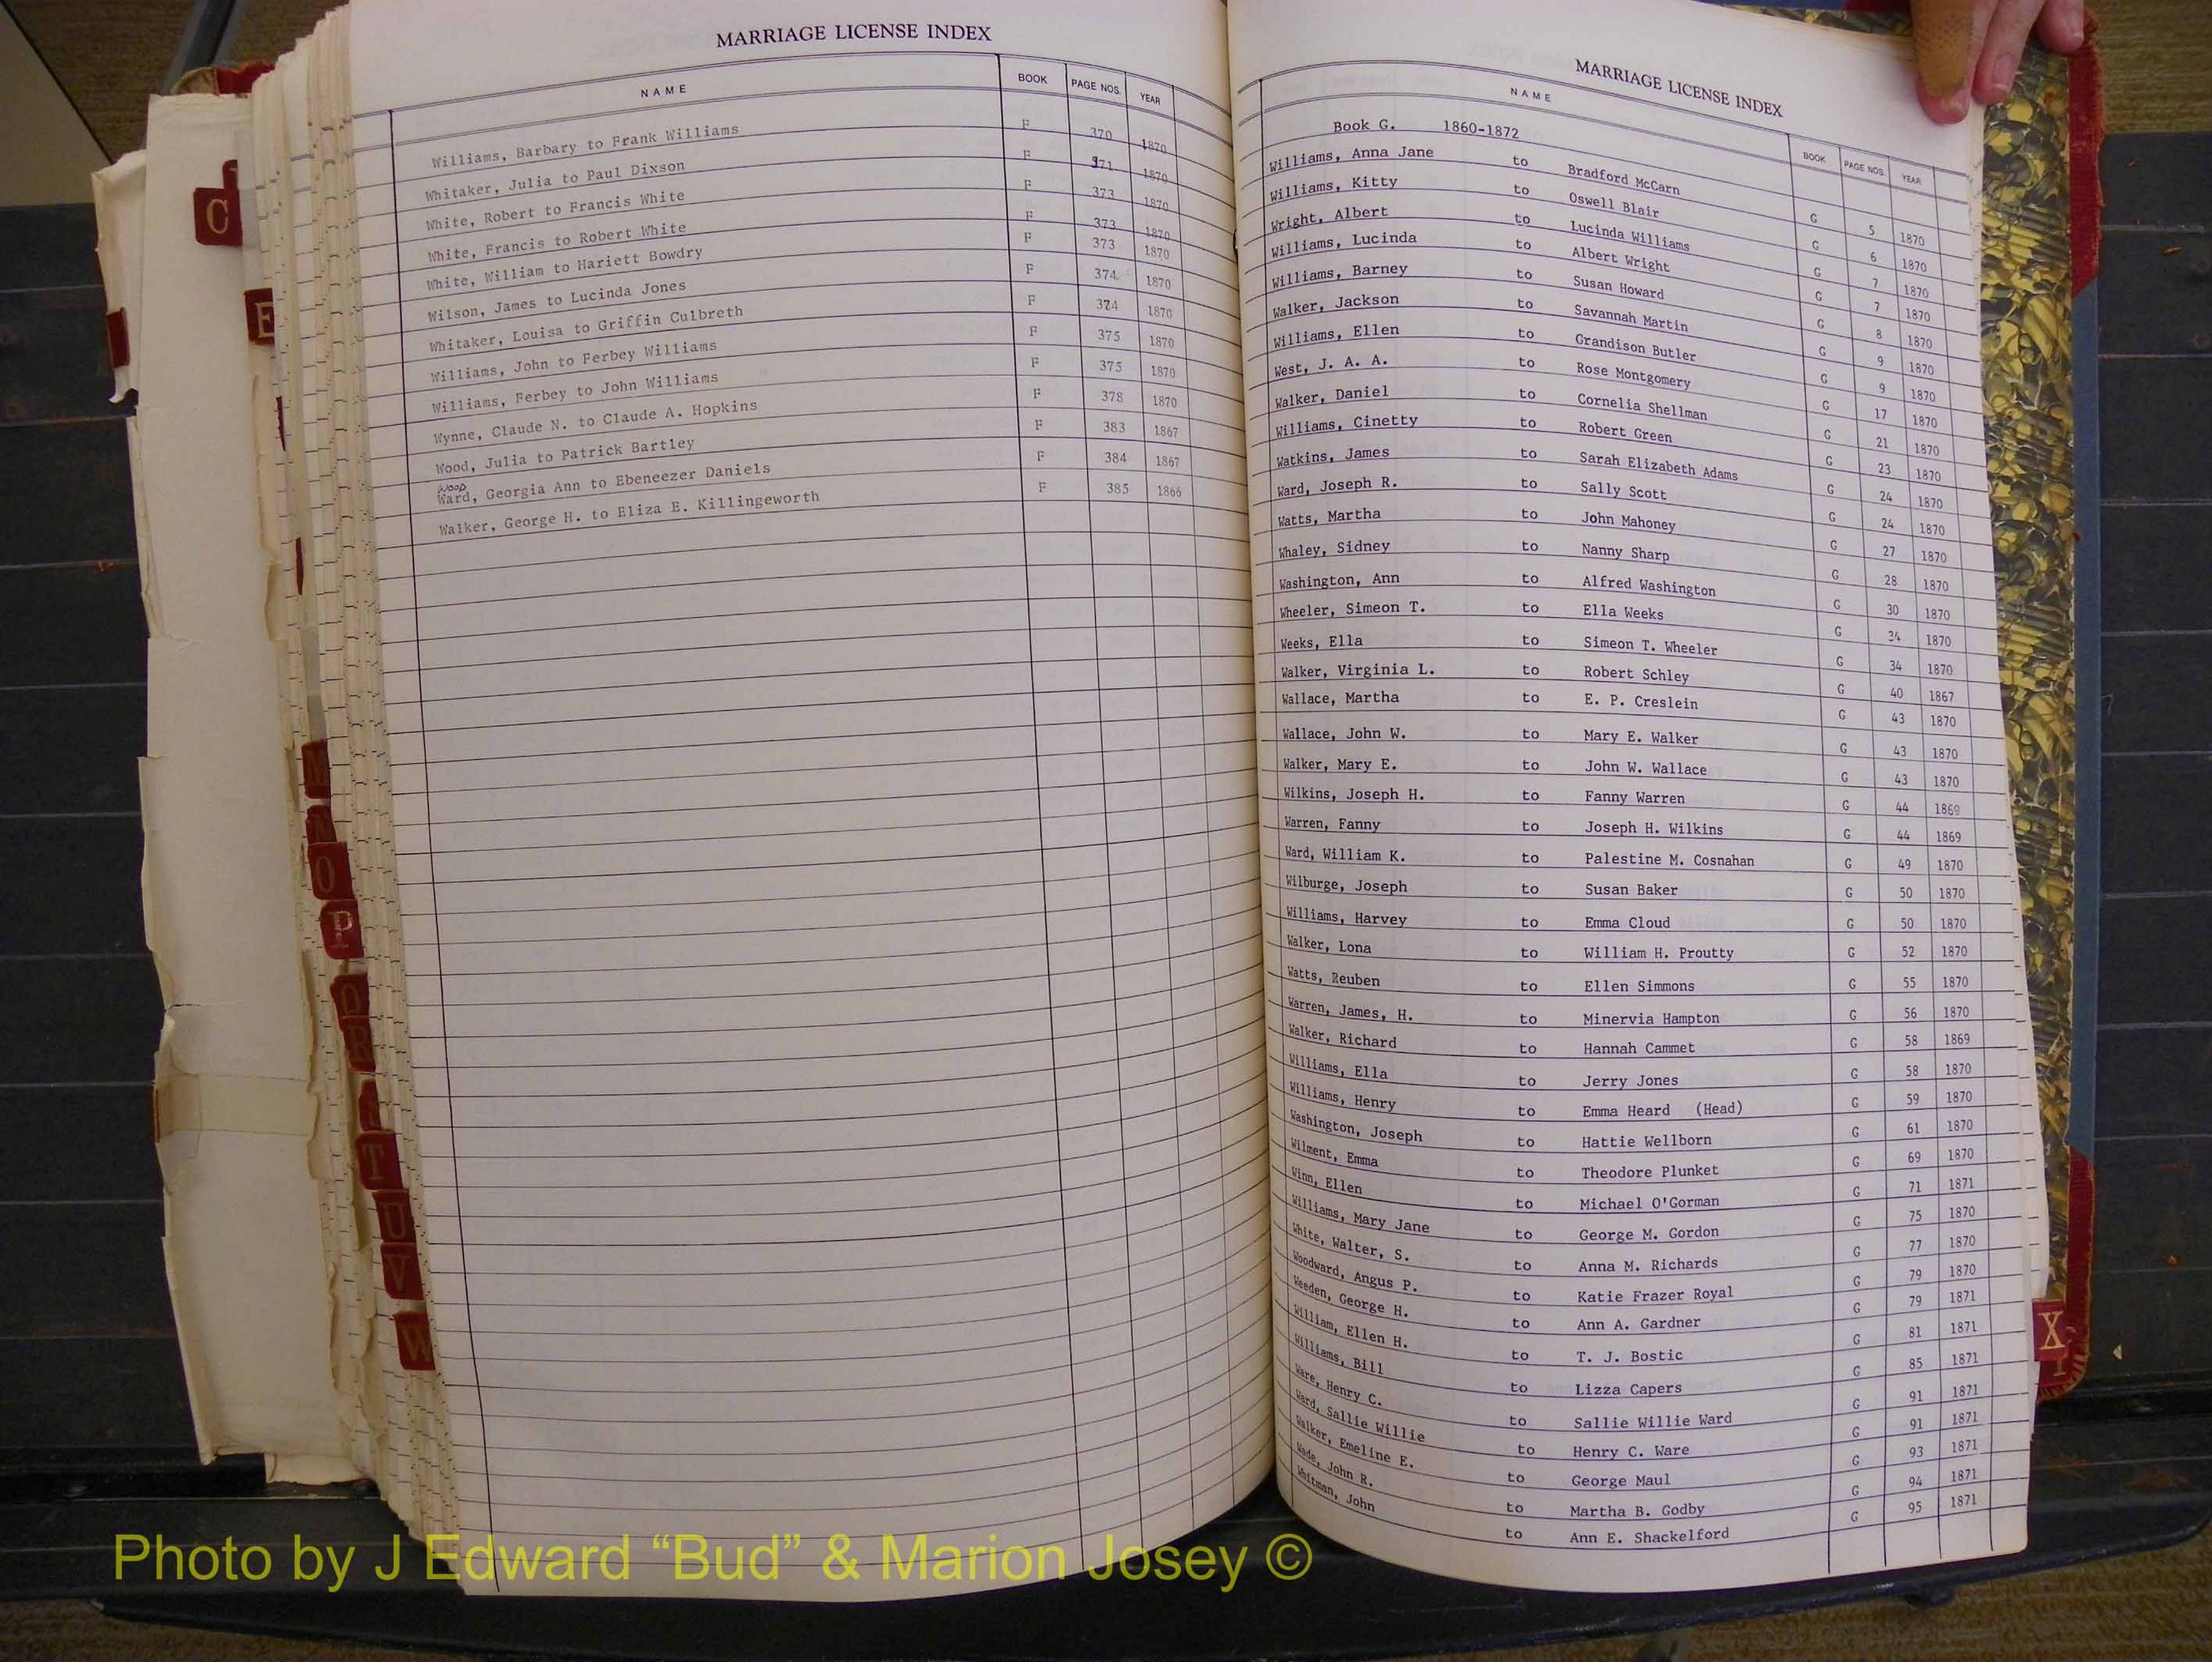 MARRIAGE LICENSE INDEX
NAME BOOK PAGE NOS. YEAR
Williams, Barbary to Frank Williams F 370 1870
Whitaker, Julia to Paul Dixson F 371 1870
White, Robert to Francis White F 373 1870
White, Francis to Robert White F 373 1870
White, William to Hariett Bowdry F 373 1870
Wilson, James to Lucinda Jones F 374 1870
Whitaker, Louisa to Griffin Culbreth F 374 1870
Williams, John to Ferbey Williams F 375 1870
Williams, Ferbey to John Williams F 375 1870
Wynne, Claude N. to Claude A. Hopkins F 378 1870
Wood, Julia to Patrick Bartley F 383 1867
WOOD
Ward, Georgia Ann to Ebeneezer Daniels F 384 1867
Walker, George H. to Eliza E. Killingeworth F 385 1866
MARRIAGE LICENSE INDEX
NAME BOOK PAGE NOS. YEAR
Book G. 1860-1872
Williams, Anna Jane to Bradford McCarn G 5 1870
Williams, Kitty to Oswell Blair G 6 1870
Wright, Albert to Lucinda Williams G 7 1870
Williams, Lucinda to Albert Wright G 7 1870
Williams, Barney to Susan Howard G 8 1870
Walker, Jackson to Savannah Martin G 9 1870
Williams, Ellen to Grandison Butler G 9 1870
West, J. A. A. to Rose Montgomery G 17 1870
Walker, Daniel to Cornelia Shellman G 21 1870
Williams, Cinetty to Robert Green G 23 1870
Watkins, James to Sarah Elizabeth Adams G 24 1870
Ward, Joseph R. to Sally Scott G 24 1870
Watts, Martha to John Mahoney G 27 1870
Whaley, Sidney to Nanny Sharp G 28 1870
Washington, Ann to Alfred Washington G 30 1870
Wheeler, Simeon T. to Ella Weeks G 34 1870
Weeks, Ella to Simeon T. Wheeler G 34 1870
Walker, Virginia L. to Robert Schley G 40 1867
Wallace, Martha to E. P. Creslein G 43 1870
Wallace, John W. to Mary E. Walker G 43 1870
Walker, Mary E. to John W. Wallace G 43 1870
Wilkins, Joseph H. to Fanny Warren G 44 1869
Warren, Fanny to Joseph H. Wilkins G 44 1869
Ward, William K. to Palestine M. Cosnahan G 49 1870
Wilburge, Joseph to Susan Baker G 50 1870
Williams, Harvey to Emma Cloud G 50 1870
Walker, Lona to William H. Proutty G 52 1870
Watts, Reuben to Ellen Simmons G 55 1870
Warren, James, H. to Minervia Hampton G 56 1870
Walker, Richard to Hannah Cammet G 58 1869
Williams, Ella to Jerry Jones G 58 1870
Williams, Henry to Emma Heard (Head) G 59 1870
Washington, Joseph to Hattie Wellborn G 61 1870
Wilment, Emma to Theodore Plunket G 69 1870
Winn, Ellen to Michael O'Gorman G 71 1871
Williams, Mary Jane to George M. Gordon G 75 1870
White, Walter, S. to Anna M. Richards G 77 1870
Woodward, Angus P. to Katie Frazer Royal G 79 1870
Weeden, George H. to Ann A. Gardner G 79 1871
William, Ellen H. to T. J. Bostic G 81 1871
Williams, Bill to Lizza Capers G 85 1871
Ware, Henry C. to Sallie Willie Ward G 91 1871
Ward, Sallie Willie to Henry C. Ware G 91 1871
Walker, Emeline E. to George Maul G 93 1871
Wade, John R. to Martha B. Godby G 94 1871
Whitman, John to Ann E. Shackelford G 95 1871
C
E
M
N
O
P
Q
R
T
U
V
W
X
Photo by J Edward “Bud” & Marion Josey ©